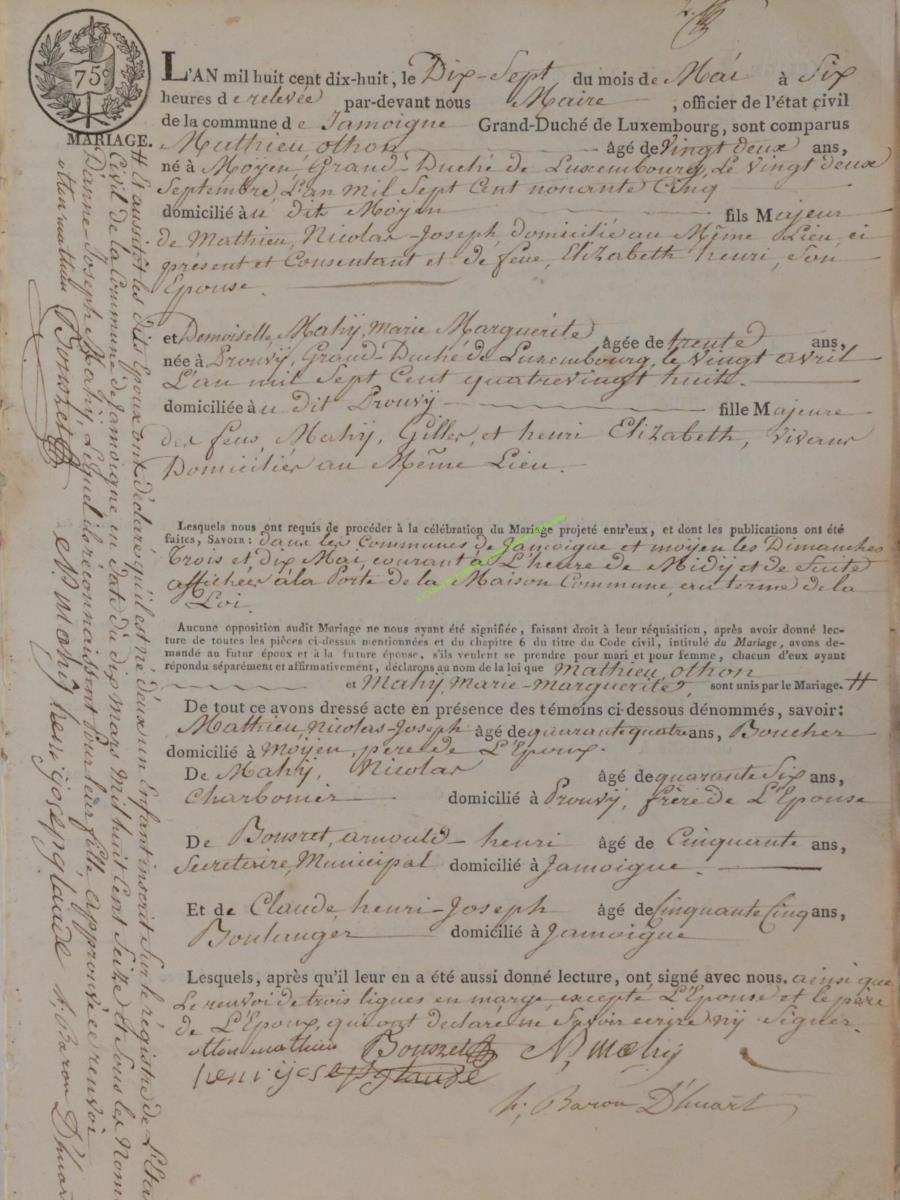 75c
MARIAGE.
L'AN mil huit cent dix-huit, le Dix-Sept du mois de Mai à Six
heures de relevée par-devant nous Maire, officier de l'état civil
de la commune de Jamoigne Grand-Duché de Luxembourg, sont comparus
Mathieu, othon âgé de vingt deux ans,
né à Moyen, Grand-Duché de Luxembourg, Le vingt deux
Septembre, L'an mil Sept Cent nonante Cinq
domicilié au dit Moyen fils Majeur
de Mathieu, Nicolas-Joseph domicilié au Même Lieu, ci
présent et Consentant et de feue, Elizabeth henri, Son
Epouse.
et Demoiselle, Mahÿ, Marie Marguérite âgée de trente ans,
née à Prouvÿ, Grand-Duché de Luxembourg, le Vingt avril
L'an mil Sept Cent quatrevingt huit.
domiciliée au Dit Prouvÿ fille Majeure
des feus, Mahÿ, Gilles, et henri Elizabeth, Vivans
Domiciliés au Même Lieu.
Lesquels nous ont requis de procéder à la célébration du Mariage projeté entr'eux, et dont les publications ont été
faites, SAVOIR: dans les Communes de Jamoigne et moÿen les Dimanches
Trois et dix Mai, courant à L'heure de Midÿ et de Suite
affichées à la Porte de la Maison Commune, au terme de la
Loi.
Aucune opposition audit Mariage ne nous ayant été signifiée, faisant droit à leur réquisition, après avoir donné lec-
ture de toutes les pièces ci-dessus mentionnées et du chapitre 6 du titre du Code civil, intitulé du Mariage, avons de-
mandé au futur époux et à la future épouse, s'ils veulent se prendre pour mari et pour femme, chacun d'eux ayant
répondu séparément et affirmativement, déclarons au nom de la loi que Mathieu, othon
et Mahÿ, Marie-marguerite, sont unis par le Mariage. #
De tout ce avons dressé acte en présence des témoins ci-dessous dénommés, savoir:
Mathieu, Nicolas-Joseph âgé de quarante quatre ans, Boucher
domicilié à Moÿen, pere de L'Epoux.
De Mahÿ, Nicolas âgé de quarante Six ans,
Charbonier domicilié à Prouvÿ, frère de L'Epouse
De Bousret, arnould-henri âgé de Cinquante ans,
Secretaire, Municipal domicilié à Jamoigne.
Et de Claude, henri-Joseph âgé de Cinquante Cinq ans,
Boulanger domicilié à Jamoigne
Lesquels, après qu'il leur en a été aussi donné lecture, ont signé avec nous. ainsi que
Le renvoi de trois lignes en marge, excepté L'Epouse et le père
de L'Epoux, qui ont declaré ne Savoir ecrire nÿ Signer.
otton mathieu Bousret N, mahÿ
henrijosepglaude
h; Baron D'huart
# Et aussitôt les dits Epoux ont déclaré qu'il est né d'eux un Enfant inscrit Sur le régistre de L'Etat
Civil de la Commune de Jamoigne en date du dix mars Mil huit Cent Seize et Sous les Noms
D'anne-Joseph Mahÿ, Lequel ils réconnaissent Pour leur fille, approuvé ce renvoi
otton mathieu Bousret N, mahÿ henrijosepglaude h; Baron D'huart